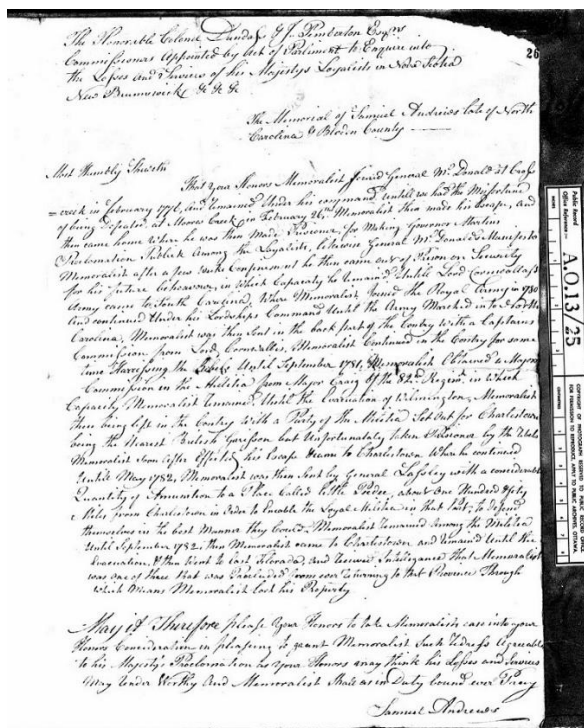 The Honorable Colonel Dundas & J. Pemberton Esqrs
Commissioners Appointed by Act of Parliment to Enquire into
the Losses and Services of his Majestys Loyalists in Nova Scotia
New Brunswick &c &c &c
26
The Memorial of Samuel Andrews late of North
Carolina & Bladen County
Most Humbly Sheweth
That your Honors Memorialist Joined General McDonald at Cross
creek in February 1776, and remained Under his command Until we had the Misfortune
of being Defeated, at Moores Creek, in February 26th Memorialist then made his Escape, and
then came home Where he was then Made Prisoner, for Making Governor Martins
Proclamation Publick Among the Loyalists, likewise General McDonalds Manifesto
Memorialist after a few Confinement he then came out of Prison on Security
for his future behaviour, in which Capacity he remain'd Untill Lord Cornwallass
Army came to South Carolina, Where Memorialist Joined the Royal Army in 1780
And continued Under his Lordships Command Until the Army Marched into North
Carolina, Memorialist was then Sent in the back part of the Contry with a Captains
Commission from Lord Cornwallis, Memorialist Continued in the Contry for some
time Harressing the Until September 1781, Memorialist Obtained a Majors
Commission in the Militia from Major Craig of the 82nd Regimt in Which
Capacity Memorialist remained Until the Evacuation of Wilmington, Memorialist
then being left in the Contry With a Party of the Militia Set out for Charlestown
being the Nearest British Garison but Unfortunately taken Prisoner by the
Memorialist Soon after Effected his Escape to Charlestown Where he continued
Untill May 1782, Memorialist was then Sent by General Lassley with a considerable
Quantity of Amunition to a Place Called little Peedee, about One Hundred & fifty
Miles from Charlestown in Order to Enable the Loyal Militia in that part, to Defend
themselves in the best Manner they Could, Memorialist remained Among the Militia
Until September 1782, then Memorialist came to Charlestown and remain'd Until the
Evacuation, & then Went to East Florada, and received Inteligance that Memorialist
was one of those that was Excluded from ever returning to that Province Through
Which Means Memorialist lost his Property
May it Therefore please Your Honors to take Memorialists case into your
Honors Consideration in pleasing to grant Memorialist Such redress Agreeable
to his Majestys Proclamation as your Honors may think his Losses and Services
May render Worthy And Memorialist Shall as in Duty bound ever Pray
Samuel Andrews
Public Record
Office Reference:-
A.O.13/25
COPYRIGHT OF DOCUMENT RESERVED TO PUBLIC RECORD OFFICE
FOR PERMISSION TO REPRODUCE, APPLY TO PUBLIC ARCHIVES, OTTAWA